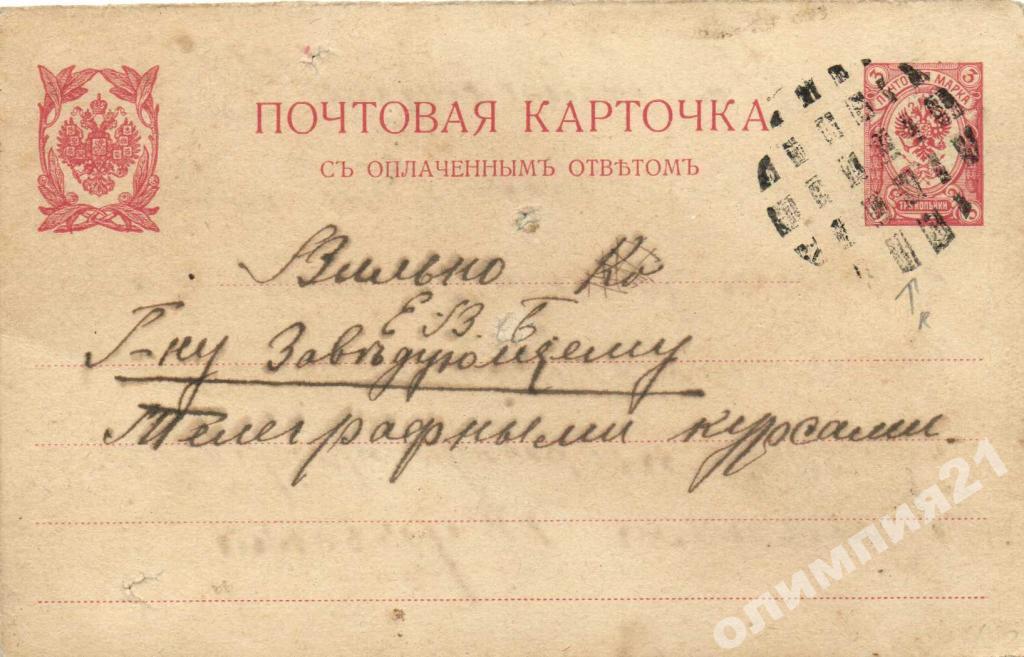 ПОЧТОВАЯ КАРТОЧКА
СЪ ОПЛАЧЕННЫМЪ ОТВѢТОМЪ
3 ПОЧТОВ МАРКА 3
ТРИ КОПѢЙКИ
Вильно
Е. В. Б
Г-ну Завѣдующему
Телеграфными курсами.
олимпия21